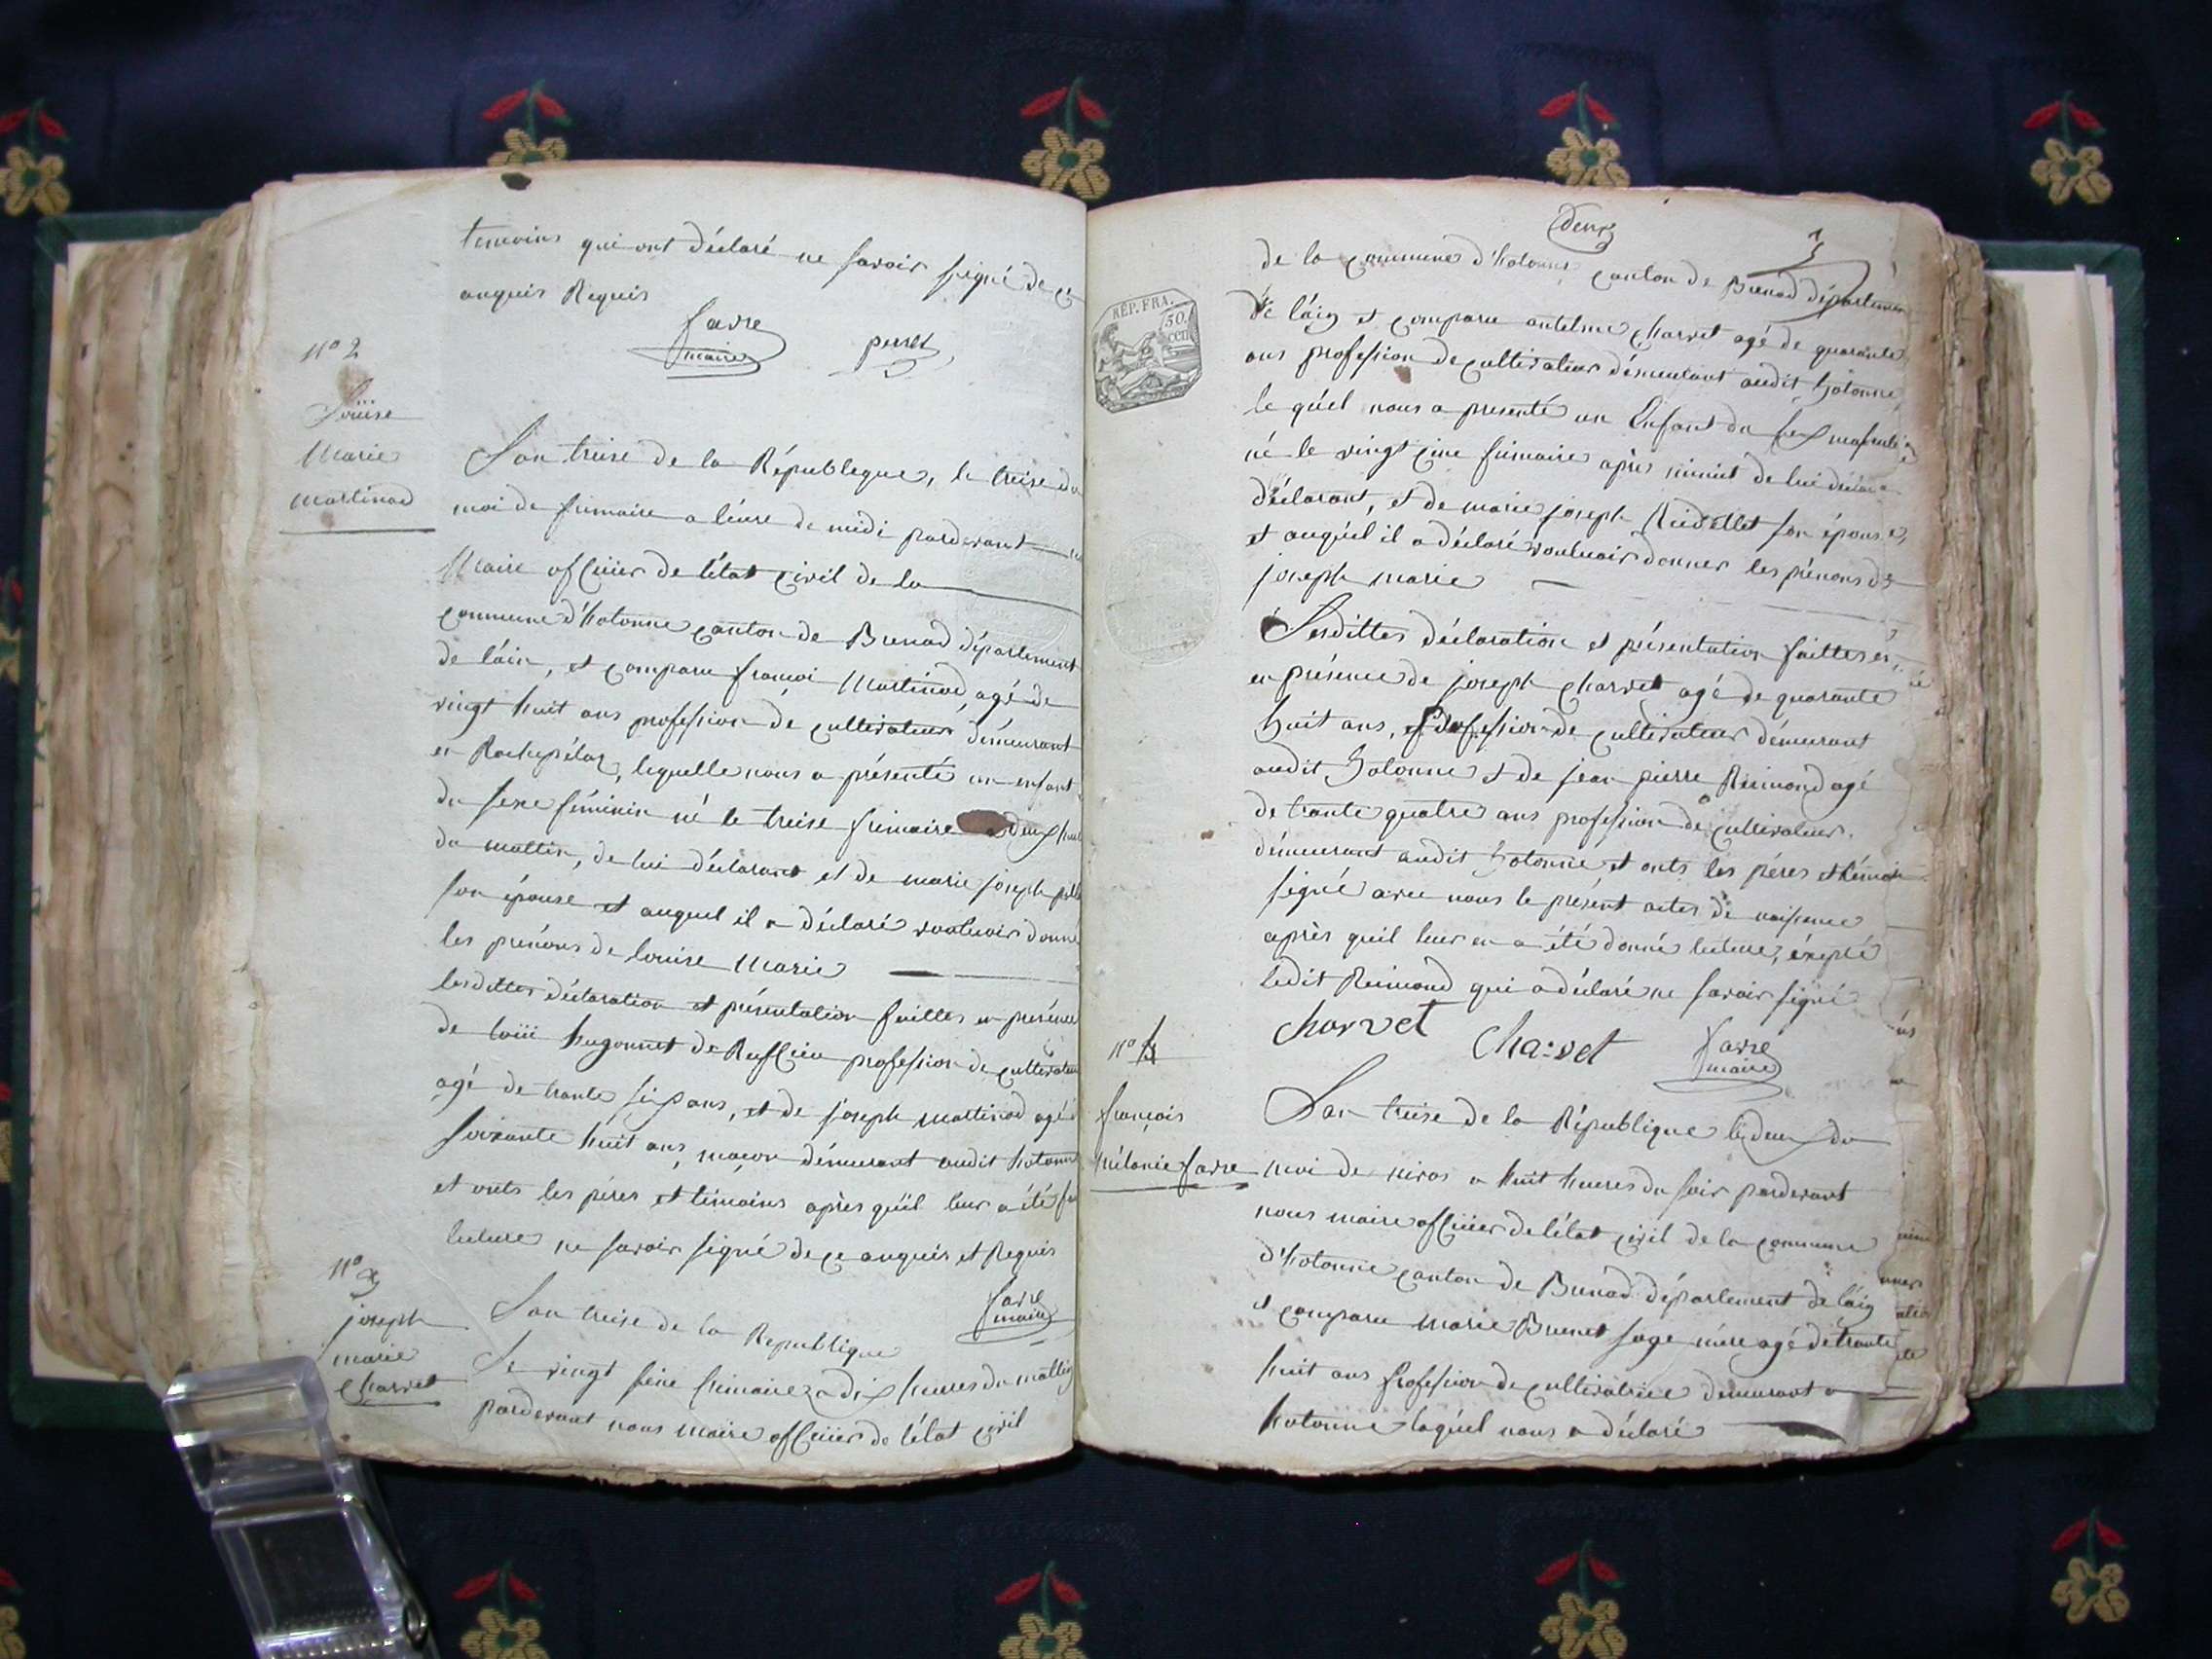 temoins qui ont déclaré ne savoir signé de ce
anquis Requis
favre
maire
perret
N° 2
Louise
Marie
Martinod
L'an treise de la République, le treise du
moi de frimaire a léure de midi pardevant
Maire officiier de létat civil de la
commune d'hotonne canton de Brenod département
de láin, et comparu françoi Martinod, agé de
vingt huit ans profession de cultivateur démeurant
en Rochepélaz, lequelle nous a présenté un enfant
du sexe féminin né le treise frimaire a deux
du mattin, de lui déclarant et de marie joseph
son épouse et auquel il a déclaré vouluoir donner
les prénons de louise Marie
lesdittes déclaration et présentation faittes en présence
de loüi hugonnet de Ruffieu profession de cultivateur
agé de trante six ans, et de joseph martinod agé
soixante huit ans, maçon démeurant audit hotonne
et onts les péres et témoins après qu'il leur a été
lecture ne savoir signé de ce anquis et Requis
favre
maire
N° 3
joseph
marie
Charvet
L'an treise de la Republique
Le vingt sine frimaire a dix heures du mattin
pardevant nous maire officiier de létat civil
deux
RÉP. FRA.
50.
cen
de la commune d'hotonne canton de Brenod département
de láin et comparu antelme Charvet agé de quarante
ans profession de cultivateur démeurant audit hotonne
le quél nous a presenté un Enfant du sex masculin
né le vingt cinc frimaire après minuit de lui
déclarant, et de marie joseph Rudellet son épouse,
et auquél il a déclaré vouluoir donner les prénons de
joseph marie
Lesdittes déclaration et présentation faittes
en présence de joseph Charvet agé de quarante
huit ans, profession de cultivateur démeurant
audit hotonne et de jean pierre Reimond agé
de trante quatre ans profession de cultivateur
démeurant audit hotonne et onts les péres et témoin
signé avec nous le présent actes de naissance
après quil leur en a été donné lecture, éxepté
ledit Reimond qui a déclaré ne savoir signé
Charvet
Charvet
favre
maire
N° 4
françois
mélanie favre
L'an treise de la République le deux du
moi de nivos a huit heures du soir pardevant
nous maire officiier de létat civil de la commune
d'hotonne canton de Brenod département de láin
et comparu marie Brunet sage mére agé de trante
huit ans profession de cultivatrice démeurant a
hotonne laquél nous a déclaré